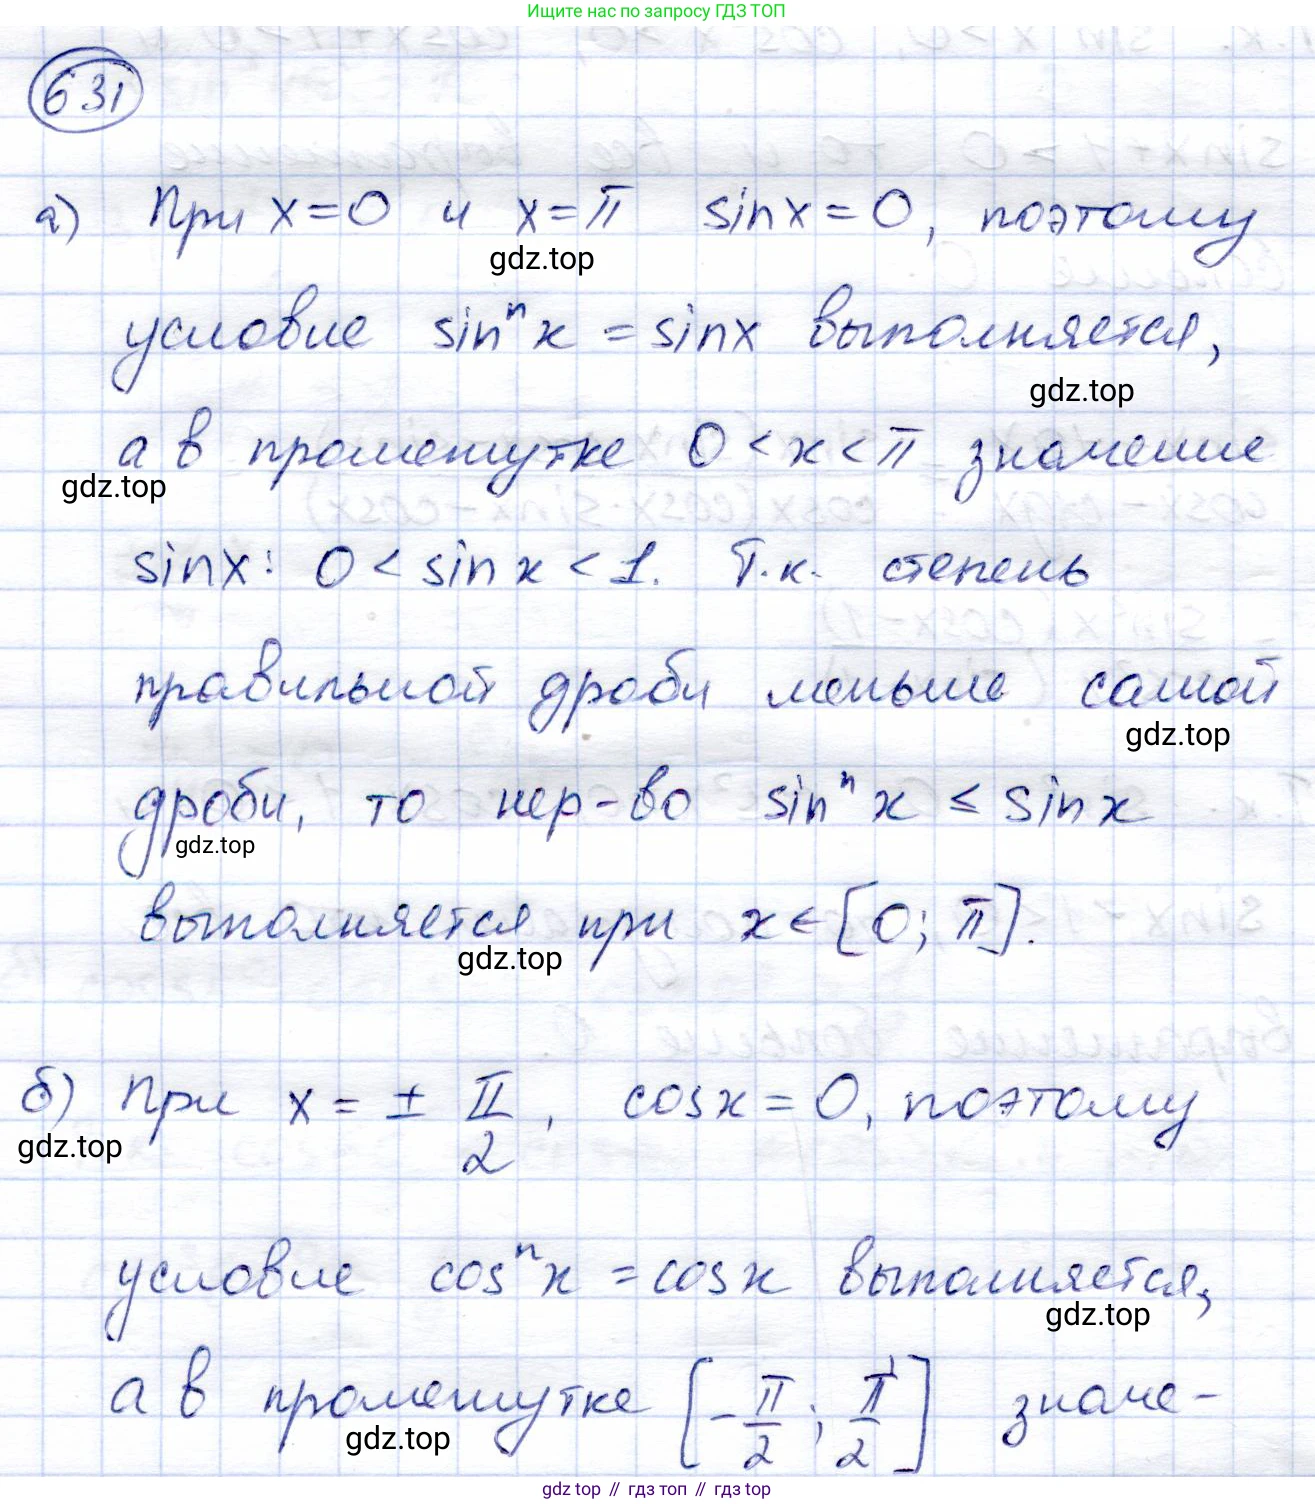 Ищите нас по запросу ГДЗ ТОП
631
а) При x=0 и x=π sinx=0, поэтому
gdz.top
условие sinⁿx = sinx выполняется,
gdz.top
а в промежутке 0<x<π значение
gdz.top
sinx: 0<sinx<1. Т.к. степень
правильной дроби меньше самой
gdz.top
дроби, то нер-во sinⁿx ≤ sinx
gdz.top
выполняется при x∈[0; π].
gdz.top
б) При x = ± π/2, cosx=0, поэтому
gdz.top
условие cosⁿx = cosx выполняется,
gdz.top
а в промежутке [-π/2; π/2] значе-
gdz.top
gdz top // гдз топ // gdz top